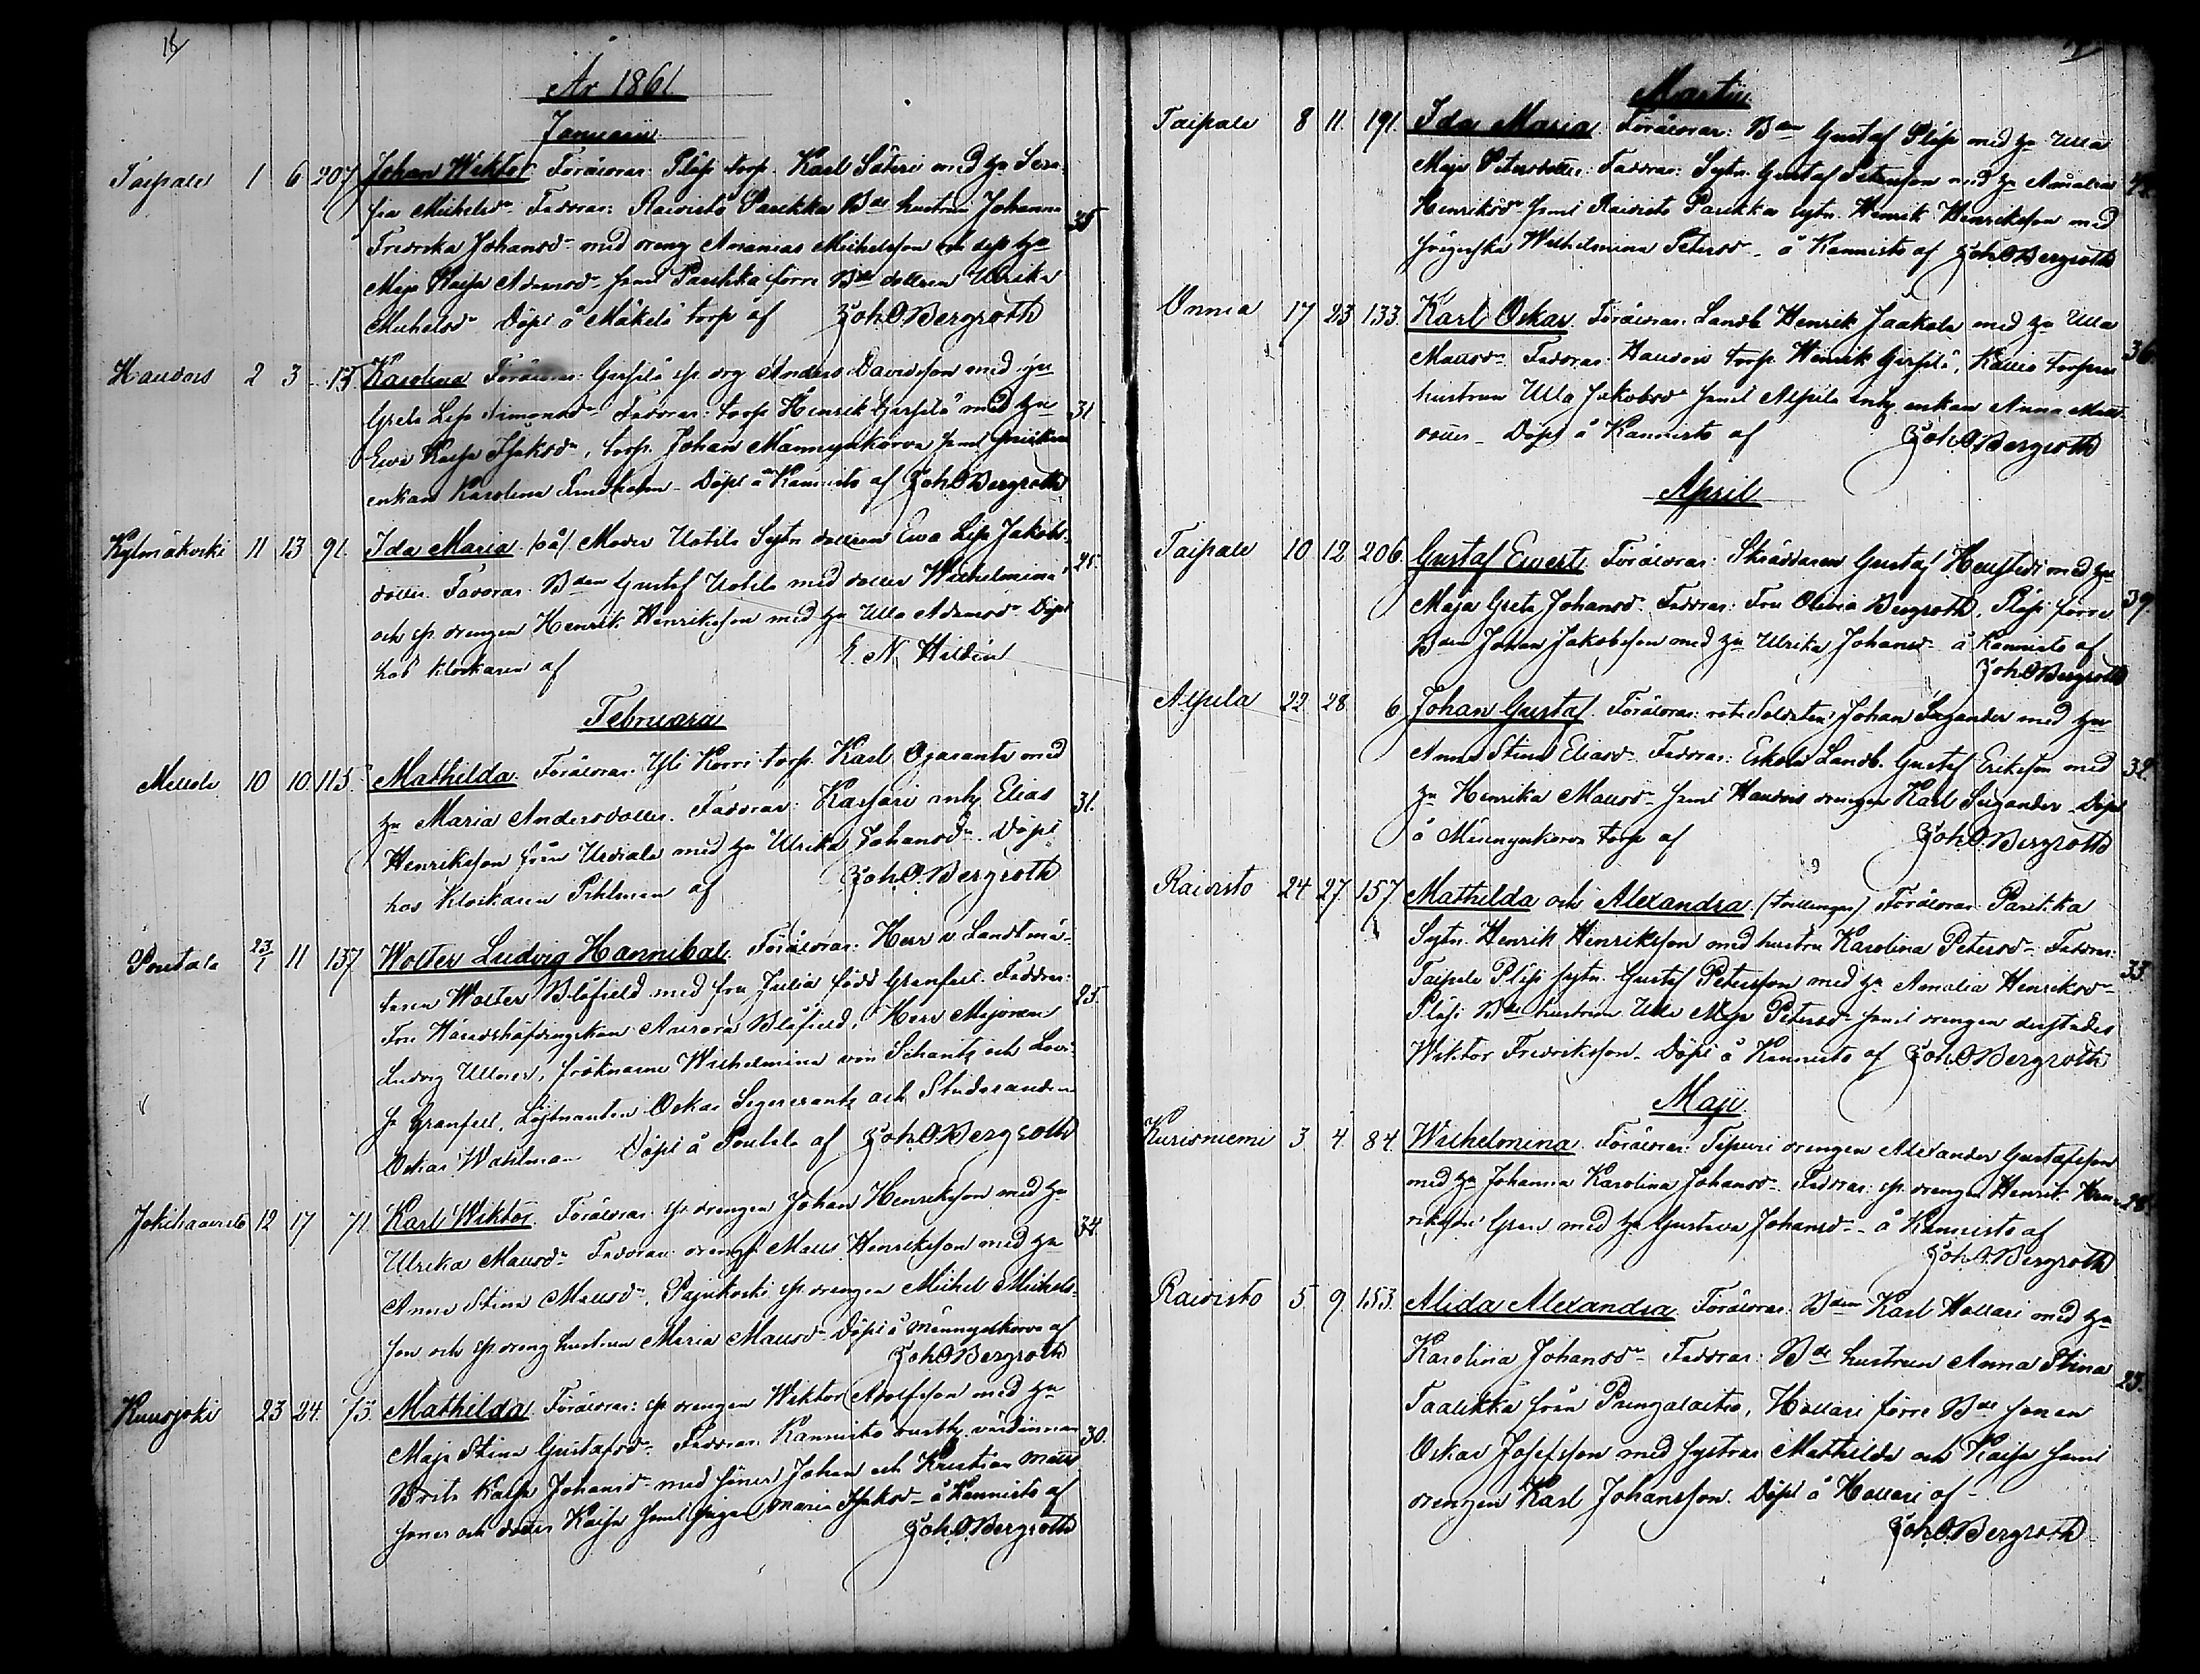 18
År 1861
Januari
Taipale 1 6 207 Johan Wiktor. Föräldrar: Pläsi torp. Karl Säteri med hu Sera-
fia Michelsdr Faddrar: Raivisto Parikka Bde hustrun Johanna 35
Fredrika Johansd med dreng Ananias Michelsson och dess hu
Maja Kaisa Adamsd samt Parikka förre Bde dottren Ulrika
Michelsd Döpt å Mäkelä torp af Joh.O.Bergroth
Haudois 2 3 15 Karolina Föräldrar: Girsilä sp. drg Anders Davidsson med hu
Greta Lisa Simonsdr Faddrar: torp. Henrik Girsilä med hu 31
Ewa Kaisa Isaksdr, torp. Johan Männynkorva samt
enkan Karolina Lindholm Döpt å Kannisto af Joh.O.Bergroth
Kylmäkoski 11 13 91. Ida Maria (oä). Moder Uotila Sytn. dottren Ewa Lisa Jakobs- 28.
dotter. Faddrar. Bden Gustaf Uotila med dotter Wilhelmina
och sp. drengen Henrik Henriksson med hu Ulla Adamsdr Döpt
hos klockaren af E. N. Hildén
Februari
Mellola 10 10 115. Mathilda. Föräldrar. Yli Korri torp. Karl Ojasanta med
hu Maria Andersdotter. Faddrar: Kaspari inhy. Elias 31.
Henriksson från Urdiala med hu Ulrika Johansdr. Döpt
hos Klockaren Pihlman af Joh.O.Bergroth
Pontala 23/1 11 137 Wolter Ludvig Hannibal. Föräldrar: Herr v. Landtmä-
taren Wolter Blåfield med fru Julia född Granfelt. Faddrar: 25.
Fru Häradshöfdingskan Aurora Blåfield, Herr Majoren
Ludvig Ullner, fröknarne Wilhelmina von Schantz och Lovi-
sa Granfelt, Löjtnanten Oskar Segercrantz och Studeranden
Oskar Wahlman Döpt å Pontala af Joh.O.Bergroth
Jokihaavisto 12 17 71. Karl Wiktor. Föräldrar sp. drengen Johan Henriksson med hu 34.
Ulrika Mattsdr Faddrar: drengen Matts Henriksson med hu
Anna Stina Mattsdr, Pajukoski sp. drengen Michel Michels-
son och sp. dreng hustrun Maria Mattsdr Döpt å Männynkorva af
Joh.O.Bergroth
Kuusjoki 23 24. 73. Mathilda. Föräldrar: sp. drengen Wiktor Adolfsson med hu
Maja Stina Gustafsdr Faddrar Kannisto rusth. värdinnan 30.
Brita Kaisa Johansd med söner Johan och Kristian Matts
söner och dotter Kaisa samt pigan Maria Isaksdr å Kannisto af
Joh.O.Bergroth
Martii
Taipale 8 11. 191. Ida Maria. Föräldrar: Bden Gustaf Pläsi med hu Ulla
Maja Petersdotter. Faddrar: Sytn. Gustaf Petersson med hu Amalia
Henriksdr samt Raivisto Parikka sytn. Henrik Henriksson med
Wilhelmina Petersdr å Kannisto af Joh.O.Bergroth
Onnia 17 23 133. Karl Oskar. Föräldrar: Landb. Henrik Jaakola med hu Ulla
Mattsdr Faddrar. Haudois torp. Henrik Girsilä, Kallio torpare 36.
hustrun Ulla Jakobsdr samt Alpila inhy. enkan Anna Matts-
dotter. Döpt å Kannisto af Joh.O.Bergroth
April
Taipale 10. 12. 206. Gustaf Ewert. Föräldrar: Skräddaren Gustaf med hu
Maja Greta Johansd. Faddrar: Fru Olivia Bergroth, Pläsi förre 39.
Bden Johan Jakobsson med hu Ulrika Johansd å Kannisto af
Joh.O.Bergroth
Alpila 22. 28 6. Johan Gustaf. Föräldrar: rote Soldaten Johan Sugander med hu
Anna Stina Eliasdr Faddrar: Eskola Landb. Gustaf Eriksson med 32.
hu Henrika Mattsdr samt Haudois drengen Karl Sugander. Döpt
å Männynkorva torp af Joh.O.Bergroth
Raivisto 24 27. 157 Mathilda och Alexandra (tvillingar) Föräldrar Parikka
Sytn. Henrik Henriksson med hustru Karolina Petersdr. Faddrar:
Taipale Pläsi sytn. Gustaf Petersson med hu Amalia Henriksdr 33.
Pläsi Bde hustrun Ulla Maja Petersdr samt drengen derstädes
Wiktor Fredriksson. Döpt å Kannisto af Joh.O.Bergroth
Maji
Kurisniemi 3. 4. 84. Wilhelmina. Föräldrar: Tipuri drengen Alexander Gustafsson
med hu Johanna Karolina Johansdr. Faddrar: sp. drengen Henrik Hen- 28.
riksson Gren med hu Gustava Johansdr å Kannisto af
Joh.O.Bergroth
Raivisto 5. 9. 153. Alida Alexandra. Föräldrar: Bden Karl Hollari med hu
Karolina Johansdr Faddrar: Bde hustrun Anna Stina 25.
Taalikka från Pungalaitio, Hollari förre Bde sonen
Oskar Josefsson med systrar Mathilda och Kaisa samt
drengen Karl Johansson. Döpt å Hollari af
Joh.O.Bergroth